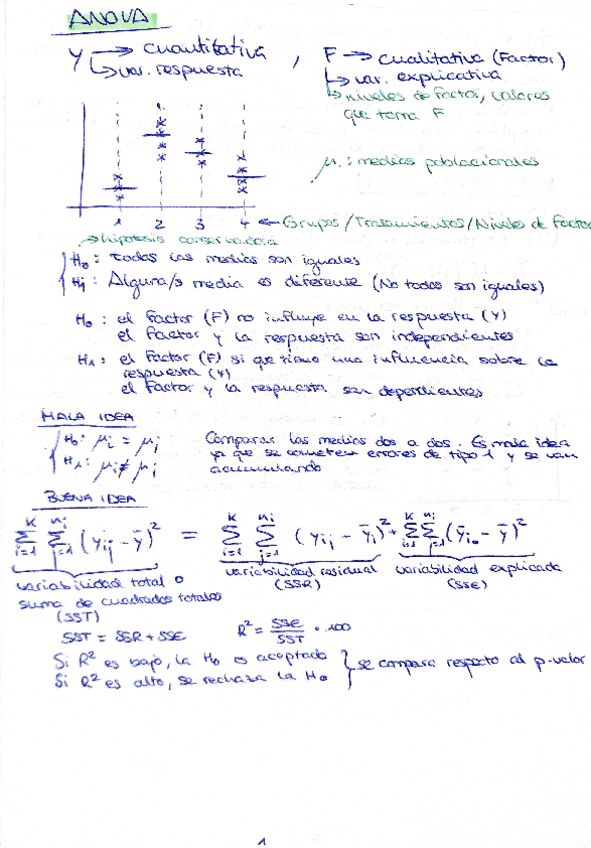 ANOVA
Y → cuantitativa , F → cualitativa (Factor)
↳ var. respuesta ↳ var. explicativa
↳ niveles de factor, valores
que toma F
μ. : medias poblacionales
1 2 3 4 ← Grupos/Tratamientos/Niveles de Factor
→ hipótesis conservadora
H₀ : Todas las medias son iguales
H₁ : Alguna/s media es diferente (No todas son iguales)
H₀ : el factor (F) no influye en la respuesta (Y)
el factor y la respuesta son independientes
H₁ : el factor (F) si que tiene una influencia sobre la
respuesta (Y)
el factor y la respuesta son dependientes
MALA IDEA
H₀ : μi = μj
H₁ : μi ≠ μj
Comparar las medias dos a dos. Es mala idea
ya que se cometen errores de tipo 1 y se van
acumulando
BUENA IDEA
K ∑ i=1 ni ∑ j=1 (yij - ȳ)² = K ∑ i=1 ni ∑ j=1 (yij - ȳi)² + K ∑ i=1 ni ∑ j=1 (ȳi. - ȳ)²
variabilidad total o
suma de cuadrados totales
(SST)
variabilidad residual
(SSR)
variabilidad explicada
(SSE)
SST = SSR + SSE R² = SSE/SST · 100
Si R² es bajo, la H₀ es aceptada
Si R² es alto, se rechaza la H₀
se compara respecto al p-valor
1